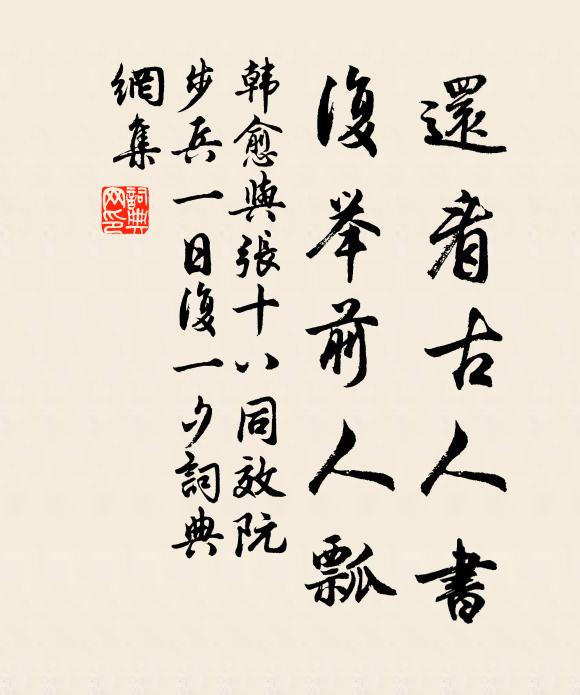 還看古人書
復举前人瓢
韩愈與張十八同效阮
步兵一日復一夕詞典
網集
詞典
网印